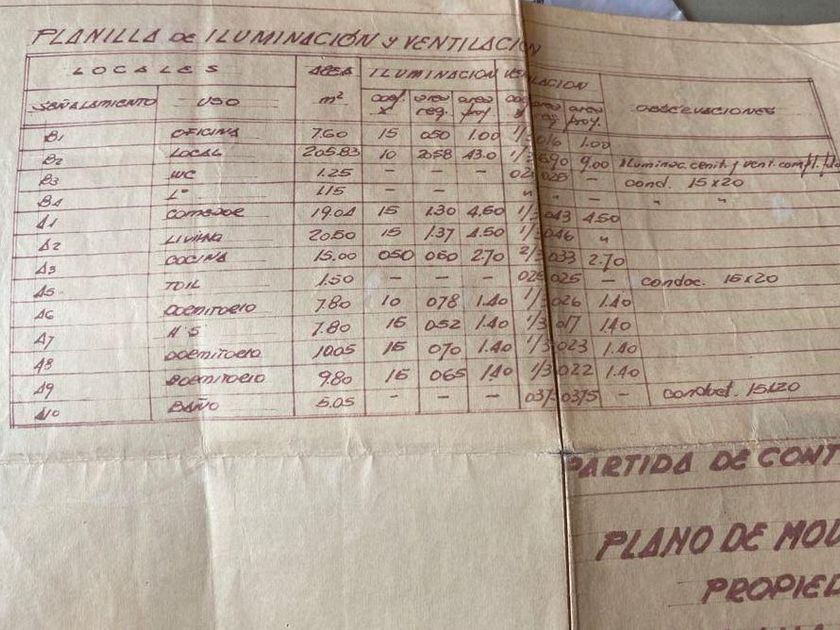 PLANILLA DE ILUMINACIÓN Y VENTILACIÓN
LOCALES AREA ILUMINACION VENTILACION OBSERVACIONES
SEÑALAMIENTO USO m² coef. x area req. area proy. area req. area proy.
B1 OFICINA 7.60 15 050 1.00 1/3 016 1.00
B2 LOCAL 205.83 10 2058 43.0 1/3 690 9.00 Iluminac. cenit. y vent.
B3 WC 1.25 - - - 025 025 - cond. 15x20
B4 L° 1.15 - - - " " - " "
A1 COMEDOR 19.04 15 1.30 4.50 1/3 043 4.50
A2 LIVING 20.50 15 1.37 4.50 1/3 046 "
A3 COCINA 15.00 050 060 2.70 2/3 033 2.70
A5 TOIL 1.50 - - - 025 025 - conduc. 15x20
A6 DORMITORIO 7.80 10 078 1.40 1/3 026 1.40
A7 H S 7.80 15 052 1.40 1/3 017 1.40
A8 DORMITORIO 10.05 15 070 1.40 1/3 023 1.40
A9 DORMITORIO 9.80 15 065 1.40 1/3 022 1.40
A10 BAÑO 5.05 - - - 0375 0375 - conduct. 15x20
PARTIDA DE CONT
PLANO DE MOD
PROPIED